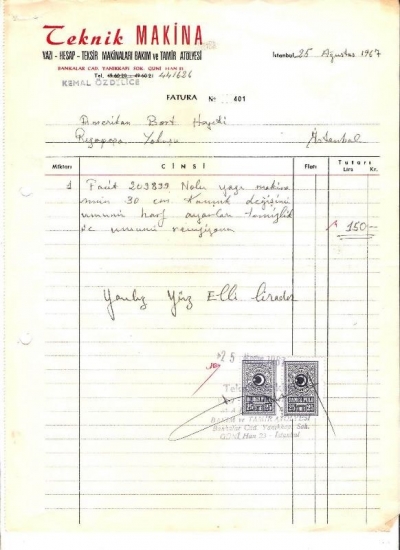 Teknik MAKİNA
YAZI - HESAP - TEKSİR MAKİNALARI BAKIM ve TAMİR ATOLYESİ
BANKALAR CAD. YANIKKAPI SOK. GÜNİ HAN 21
Tel. 49 60 20 - 49 60 21 441626
KEMAL ÖZDİLİCE
İstanbul, 25 Ağustos 1967
FATURA No 401
Amerikan Bort Heyeti
Rızapaşa Yokuşu İstanbul
Miktarı CİNSİ Fiatı Tutarı
Lira Kr.
1 Facit 203839 Nolu yazı makina
30 cm değişimi
umumi harf ayarları temizlik
umumi revizyonu 150—
Yanlız Yüz Elli liradır
25
BAKIM ve TAMİR ATOLYESİ
Bankalar Cad. Yanıkkapı Sok.
GÜNİ Han 21 - İstanbul